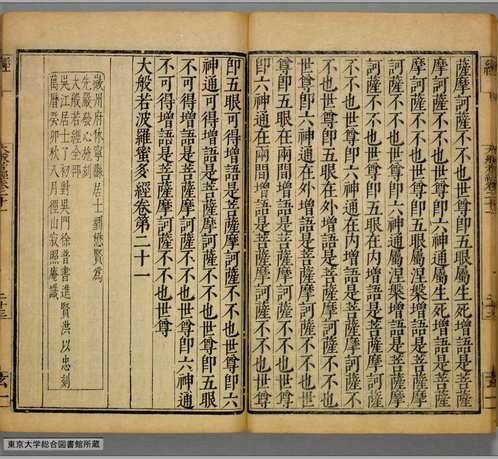 薩摩訶薩不不也世尊即五眼屬生死增語是菩薩
摩訶薩不不也世尊即六神通屬生死增語是菩薩
摩訶薩不不也世尊即五眼屬涅槃增語是菩薩摩
訶薩不不也世尊即六神通屬涅槃增語是菩薩摩
訶薩不不也世尊即五眼在內增語是菩薩摩訶薩
不不也世尊即六神通在內增語是菩薩摩訶薩不
不也世尊即五眼在外增語是菩薩摩訶薩不不也
世尊即六神通在外增語是菩薩摩訶薩不不也世
尊即五眼在兩間增語是菩薩摩訶薩不不也世尊
即六神通在兩間增語是菩薩摩訶薩不不也世尊
即五眼可得增語是菩薩摩訶薩不不也世尊即六
神通可得增語是菩薩摩訶薩不不也世尊即五眼
不可得增語是菩薩摩訶薩不不也世尊即六神通
不可得增語是菩薩摩訶薩不不也世尊
大般若波羅蜜多經卷第二十一
徽州府休寧縣居士懋賢為
先嚴發心施
大般若經全部
吳江居士了初對吳門徐普書進賢洪以忠刻
萬曆癸卯秋八月徑山寂照庵識
東京大学総合図書館所蔵